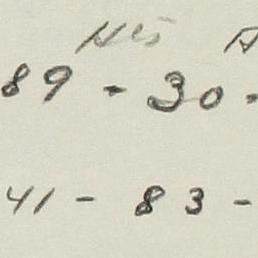 89 - 30 -
41 - 83 -